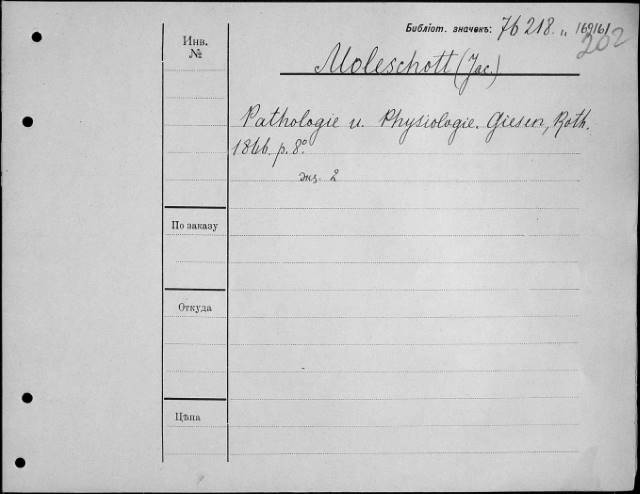 Библіот. значекъ: 76 218. „ 169161
202
Инв.
№
Moleschott (Jac.)
Pathologie u. Physiologie. Giesen, Roth.
1866. p. 8°.
экз. 2
По заказу
Откуда
Цѣна